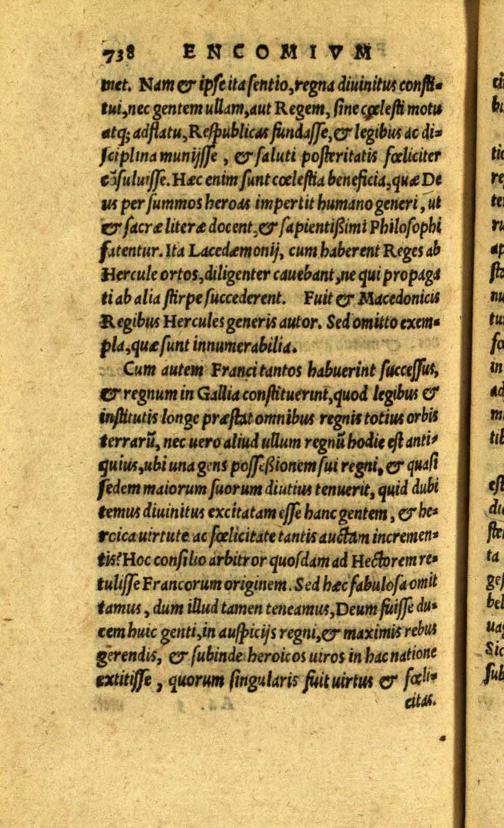 738 ENCOMIVM
met. Nam & ipse ita sentio, regna diuinitus consti-
tui, nec gentem ullam, aut Regem, sine cœlesti motu
atq; adflatu, Respublicas fundasse, & legibus ac di-
sciplina munijsse, & saluti posteritatis fœliciter
cõsuluisse. Hæc enim sunt cœlestia beneficia, quæ De
us per summos heroas impertit humano generi, ut
& sacræ literæ docent, & sapientißimi Philosophi
fatentur. Ita Lacedæmonij, cum haberent Reges ab
Hercule ortos, diligenter cauebant, ne qui propaga
ti ab alia stirpe succederent. Fuit & Macedonicis
Regibus Hercules generis autor. Sed omitto exem-
pla, quæ sunt innumerabilia.
Cum autem Franci tantos habuerint successus,
& regnum in Gallia constituerint, quod legibus &
institutis longe præstat omnibus regnis totius orbis
terrarũ, nec uero aliud ullum regnũ hodie est anti-
quius, ubi una gens possessionem sui regni, & quasi
sedem maiorum suorum diutius tenuerit, quid dubi
temus diuinitus excitatam esse hanc gentem, & he-
roica uirtute ac fœlicitate tantis auctam incremen-
tis? Hoc consilio arbitror quosdam ad Hectorem re-
tulisse Francorum originem. Sed hæc fabulosa omit
tamus, dum illud tamen teneamus, Deum fuisse du-
cem huic genti, in auspicijs regni, & maximis rebus
gerendis, & subinde heroicos uiros in hac natione
extitisse, quorum singularis fuit uirtus & fœli-
citas.